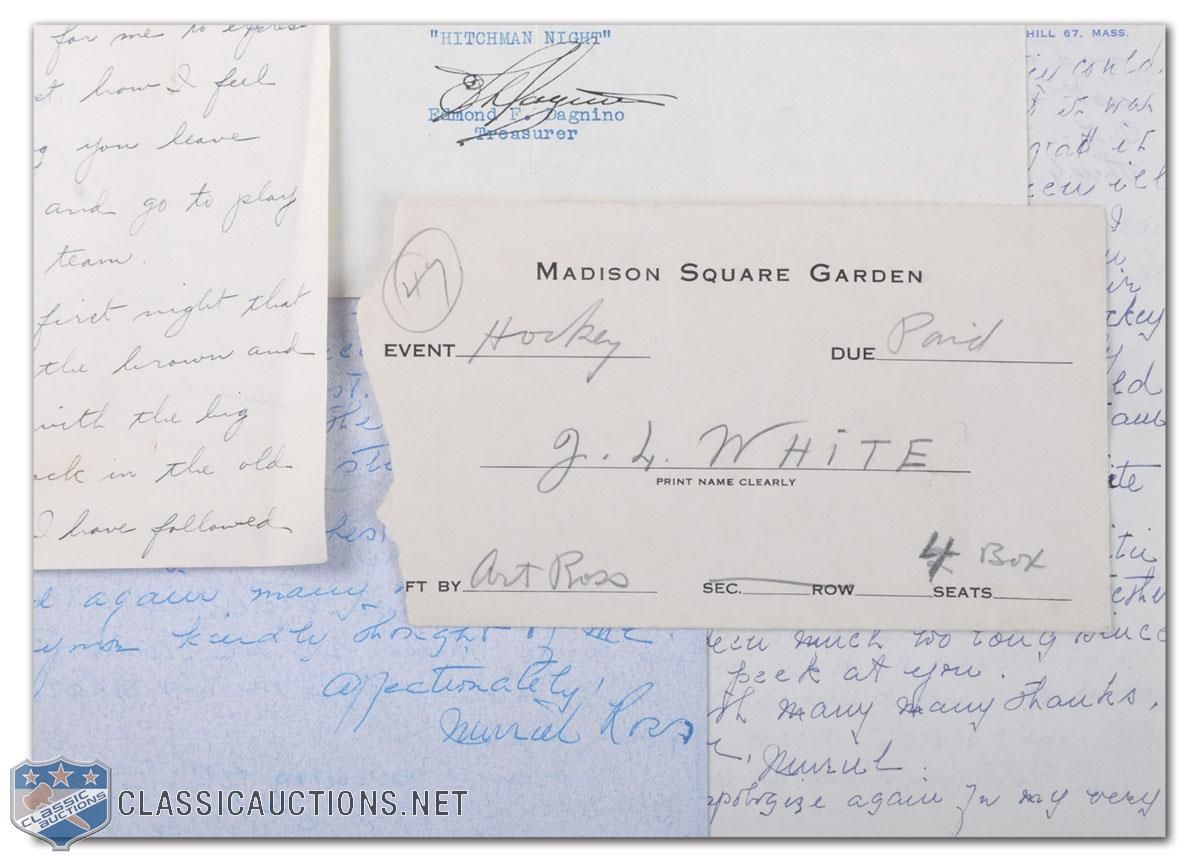 for me to express
how I feel
you leave
and go to play
team.
first night that
the brown and
with the big
in the old
I have followed
"HITCHMAN NIGHT"
Edmond F. Dagnino
Treasurer
HILL 67, MASS.
could
it was
it
I
ed
MADISON SQUARE GARDEN
EVENT Hockey
DUE Paid
J. L. WHITE
PRINT NAME CLEARLY
FT BY Art Ross
SEC. ROW SEATS 4 Box
again many
kindly thought of me.
Affectionately,
Muriel Ross
much too long since
peek at you.
many many thanks,
Muriel.
apologize again for my very
CLASSIC AUCTIONS
CLASSICAUCTIONS.NET